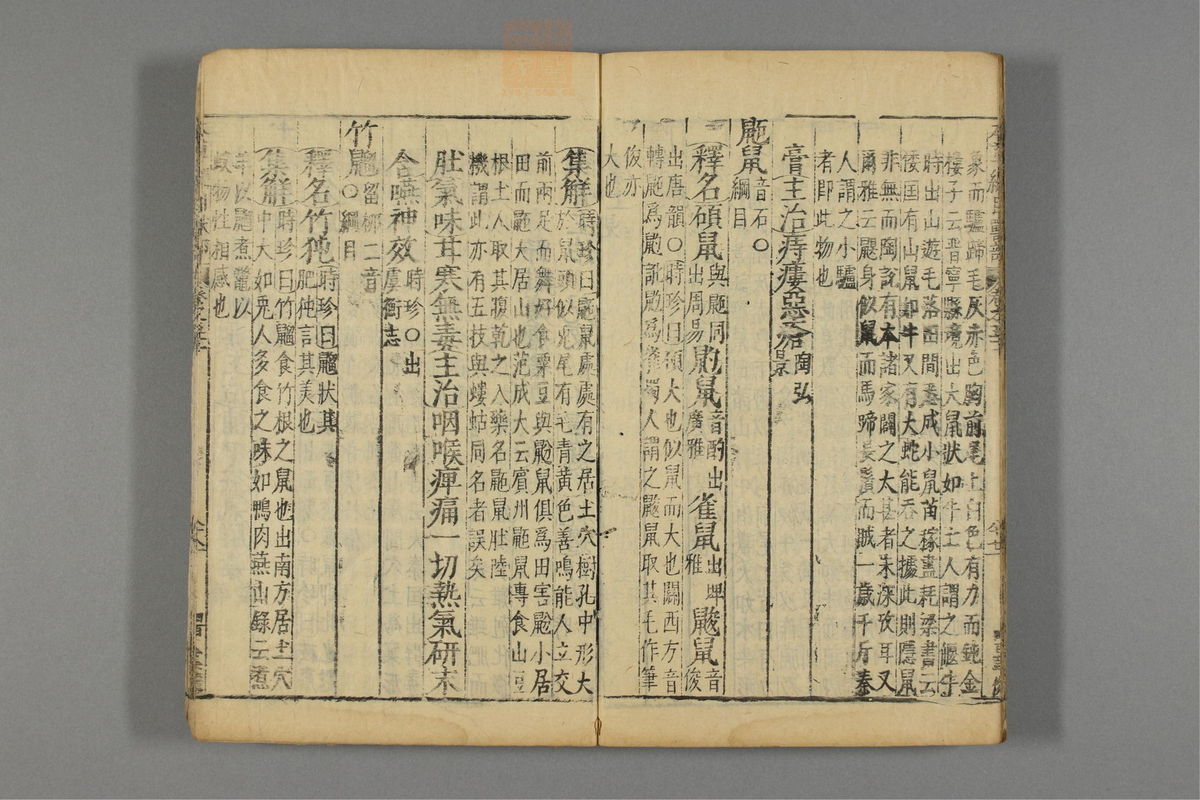 象而驢蹄毛灰赤色胸前尾上白色有力而鈍金
樓子云晋寧縣境出大鼠狀如牛土人謂之偃牛
時出山遊毛落田間悉成小鼠苗稼盡耗梁書云
倭国有山鼠如牛又有大蛇能吞之據此則隱鼠
非無而陶說有本諸家闢之太甚者未深攷耳又
爾雅云鼳身似鼠而馬蹄長鬚而賊一歲千斤秦
人謂之小驢
者即此物也
膏主治痔瘻惡瘡陶弘景
鼫鼠音石○綱目
釋名碩鼠與鼫同出周易鼩鼠音酌出廣雅雀鼠出埤雅鼮鼠音俊
出唐韻○時珍曰碩大也似鼠而大也關西方音
轉鼫為鼩訛鼩為雀蜀人謂之鼮鼠取其毛作筆
俊亦
大也
集解時珍曰鼫鼠處處有之居土穴樹孔中形大
於鼠頭似兎尾有毛青黄色善鳴能人立交
前兩足而舞好食粟豆與鼢鼠俱為田害鼢小居
田而鼫大居山也范成大云賓州鼫鼠專食山豆
根土人取其腹乾之入藥名鼫鼠肚陸
機謂此亦有五技與螻蛄同名者誤矣
肚氣味甘寒無毒主治咽喉痺痛一切熱氣研末
含嚥神效時珍○出虞衡志
竹䶉留柳二音○綱目
釋名竹㹠時珍曰䶉狀其肥㹠言其美也
集解時珍曰竹䶉食竹根之鼠也出南方居土穴
中大如兎人多食之味如鴨肉燕山錄云煮
羊以䶉煮鼈以
蚊物性相感也